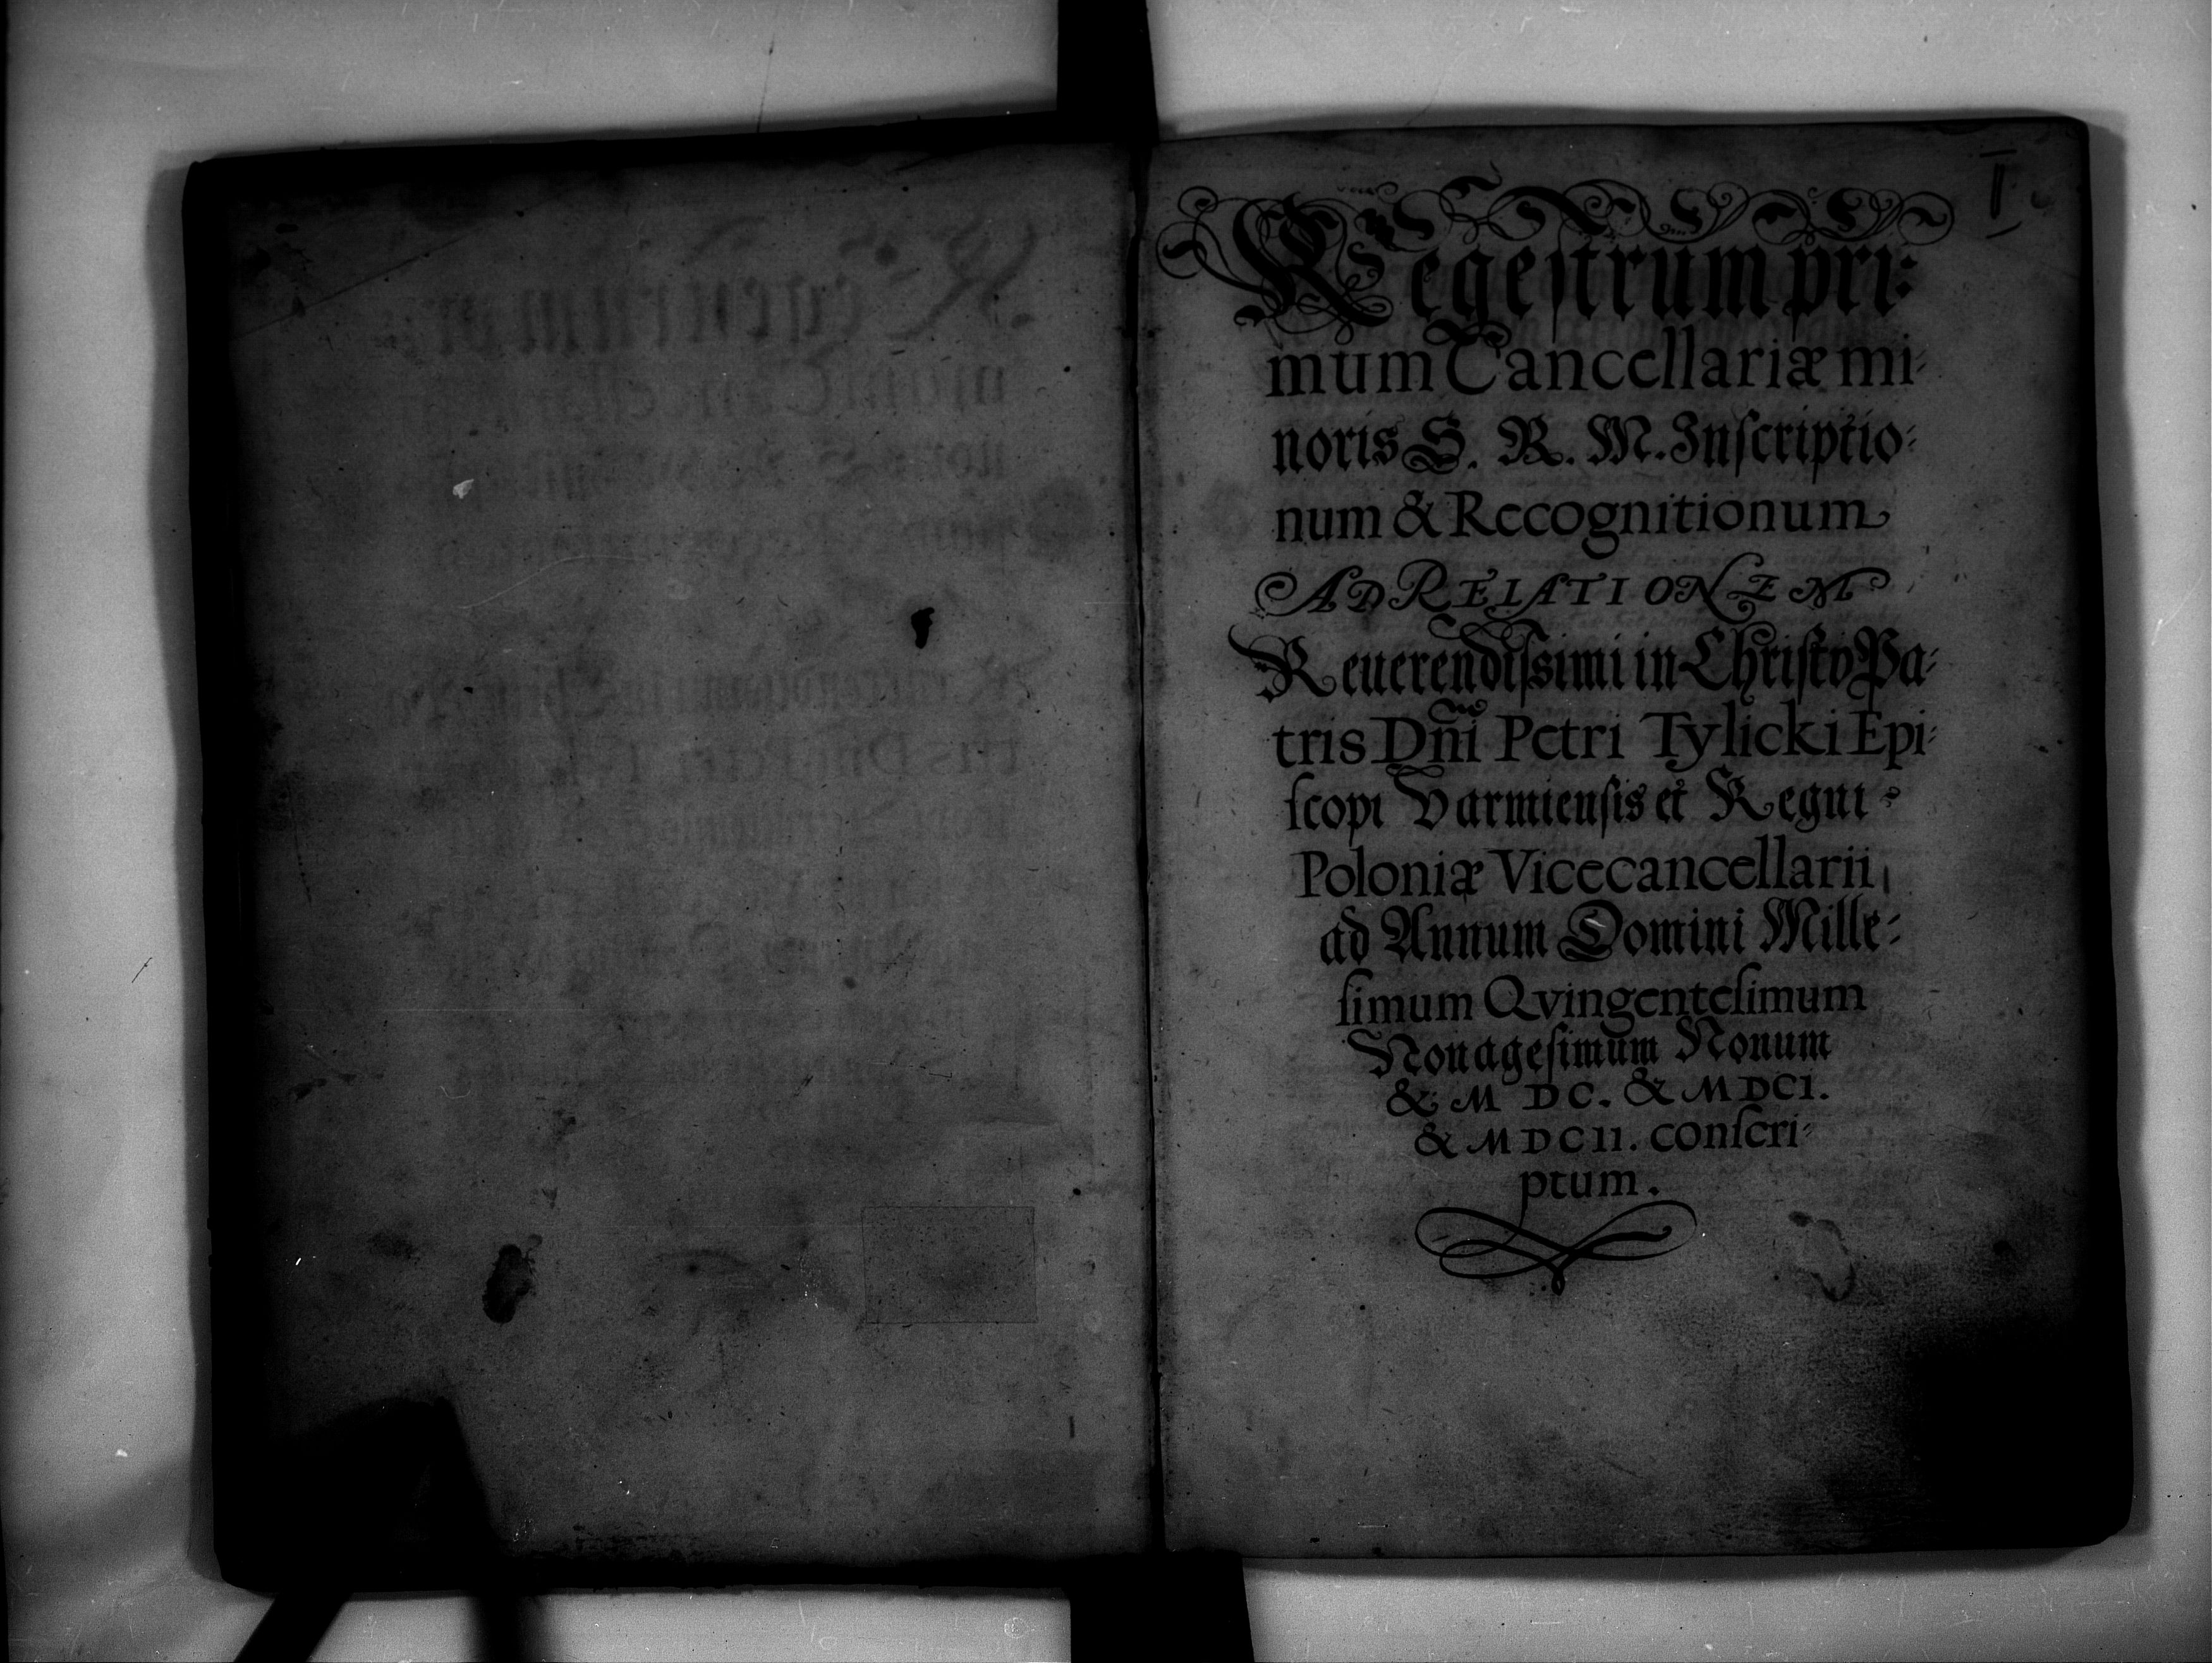 I
Regeſtrum pri:
mum Cancellariæ mi⸗
noris S. R. M. Inſcriptio⸗
num & Recognitionum
AD RELATIONEM
Reuerendiſsimi in Chriſto Pa⸗
tris Dn̄i Petri Tylicki Epi⸗
ſcopi Varmienſis et Regni
Poloniæ Vicecancellarii
ad Annum Domini Mille⸗
ſimum Qvingenteſimum
Nonageſimum Nonum
& M DC. & MDCI.
& MDCII. conſcri⸗
ptum.